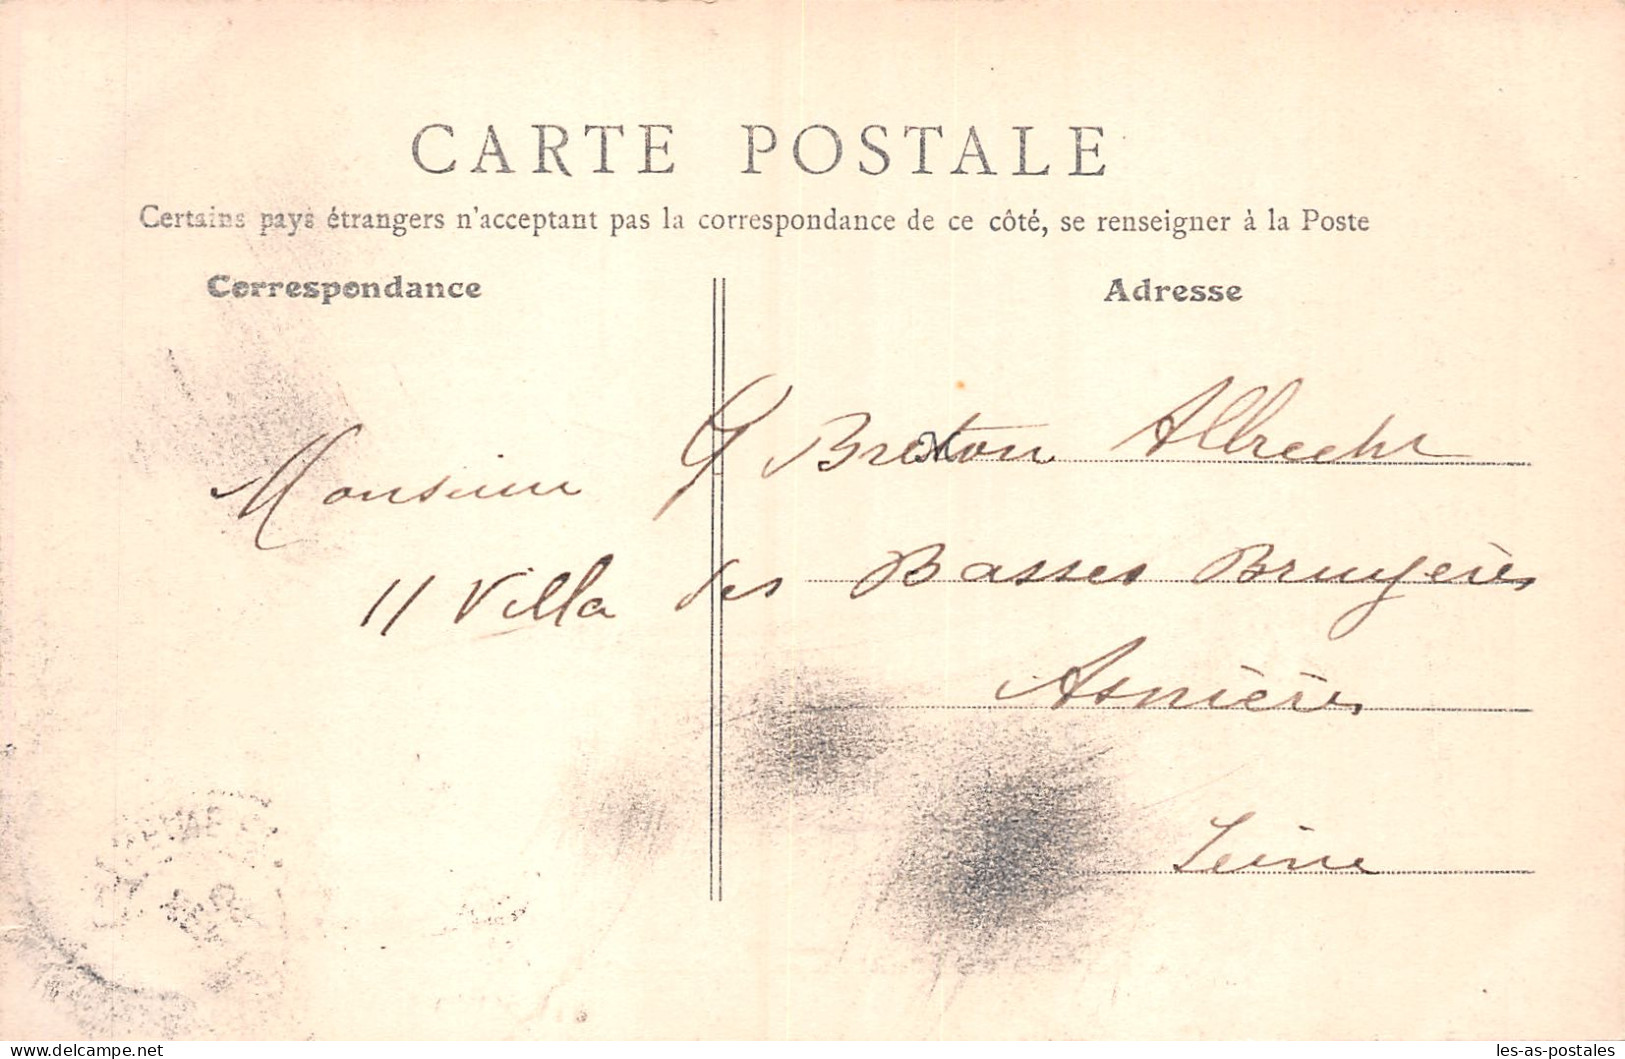 CARTE POSTALE
Certains pays étrangers n'acceptant pas la correspondance de ce côté, se renseigner à la Poste
Correspondance
Adresse
Monsieur G Breton Albrecht
11 Villa des Basses Bruyères
Asnières
Seine
les-as-postales